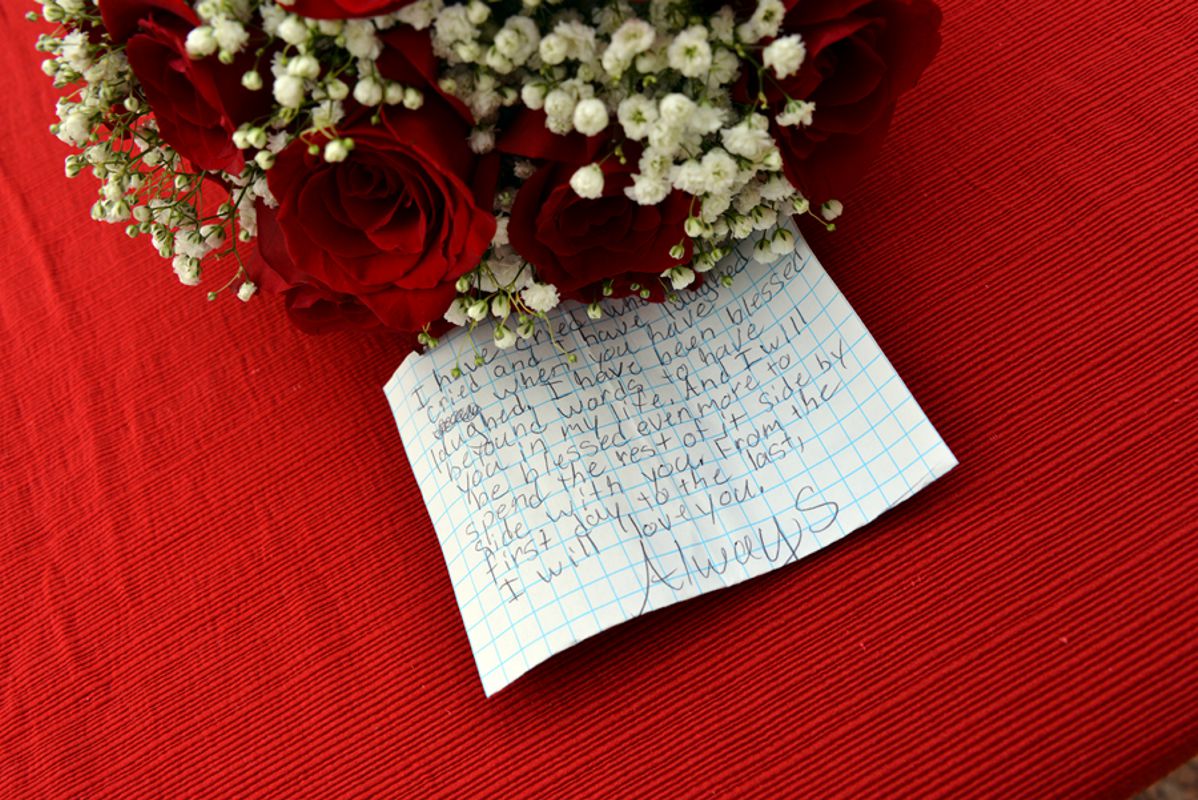 I have cried when
cried and I have laughed
when you have
laughed. I have been blessed
beyound words to have
you in my life. And I will
be blessed even more to
spend the rest of it side by
side with you. From the
first day to the last,
I will love you.
Always